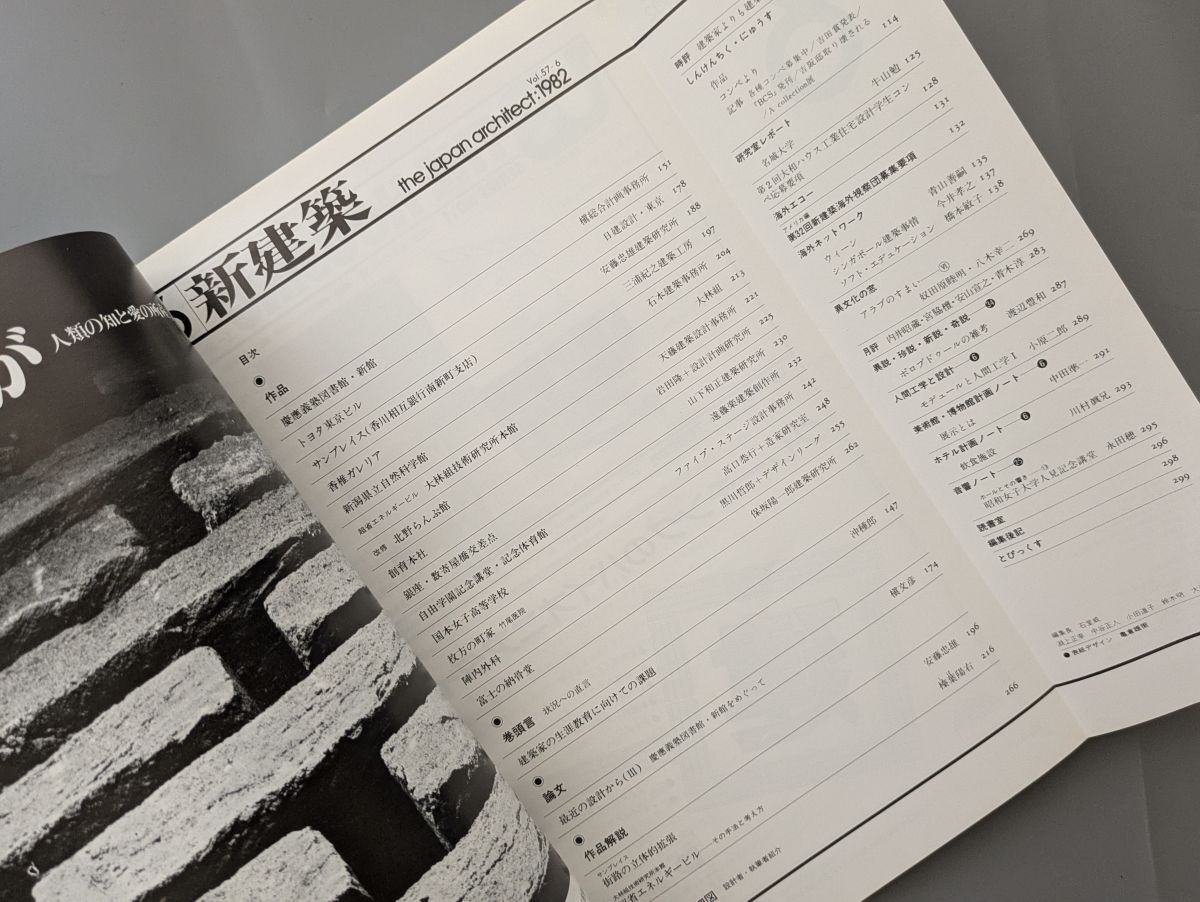 が
人類の知と愛の所
6
新建築
the japan architect:1982
Vol.57-6
目次
作品
慶應義塾図書館・新館 槇総合計画事務所 151
トヨタ東京ビル 日建設計・東京 178
サンプレイス(香川相互銀行南新町支店) 安藤忠雄建築研究所 188
香椎ガレリア 三浦紀之建築工房 197
新潟県立自然科学館 石本建築事務所 204
超省エネルギービル 大林組技術研究所本館 大林組 213
改修 北野らんぷ館 天藤建築設計事務所 221
創育本社 岩田隆+設計計画研究所 225
銀座・数寄屋橋交差点 山下和正建築研究所 230
自由学園記念講堂・記念体育館 遠藤楽建築創作所 232
国本女子高等学校 ファイブ・ステージ設計事務所 242
枚方の町家 竹尾医院 高口恭行+造家研究室 248
陣内外科 黒川哲郎+デザインリーグ 255
富士の納骨堂 保坂陽一郎建築研究所 262
巻頭言 状況への直言
建築家の生涯教育に向けての課題 沖種郎 147
論文
最近の設計から(III) 慶應義塾図書館・新館をめぐって 槇文彦 174
作品解説
サンプレイス
街路の立体的拡張 安藤忠雄 196
大林組技術研究所本館
省エネルギービル——その手法と考え方 極楽陽右 216
図 設計者・執筆者紹介 266
時評 建築家よりも建築
しんけんちく・にゅうす
作品
コンペより
記事 各種コンペ募集中/吉田賞発表/
「BCS」発刊/吉阪邸取り壊される
/A collection展 114
研究室レポート
名城大学 牛山勉 125
第2回大和ハウス工業住宅設計学生コン
ペ応募要項 128
海外エコー 131
アメリカ編
第32回新建築海外視察団募集要項 132
海外ネットワーク
ウィーン 青山善嗣 135
シンガポール建築事情 今井孝之 137
ソフト・エデュケーション 橋本敏子 138
異文化の窓
アラブのすまい 奴田原睦明・八木幸二 269
月評 内井昭蔵・宮脇檀・安山宣之・青木淳 283
異説・珍説・新説・奇説
ボロブドゥールの雑考 渡辺豊和 287
人間工学と設計 6
モデュールと人間工学I 小原二郎 289
美術館・博物館計画ノート 6
展示とは 中田準一 291
ホテル計画ノート 6
飲食施設 川村眞兄 293
音響ノート
ホールとその響き
昭和女子大学人見記念講堂 永田穂 295
読書室 296
編集後記 298
とぴっくす 299
編集長 石堂威
渕上正幸 中谷正人 小田道子 鈴木明 大
●表紙デザイン 亀倉雄策